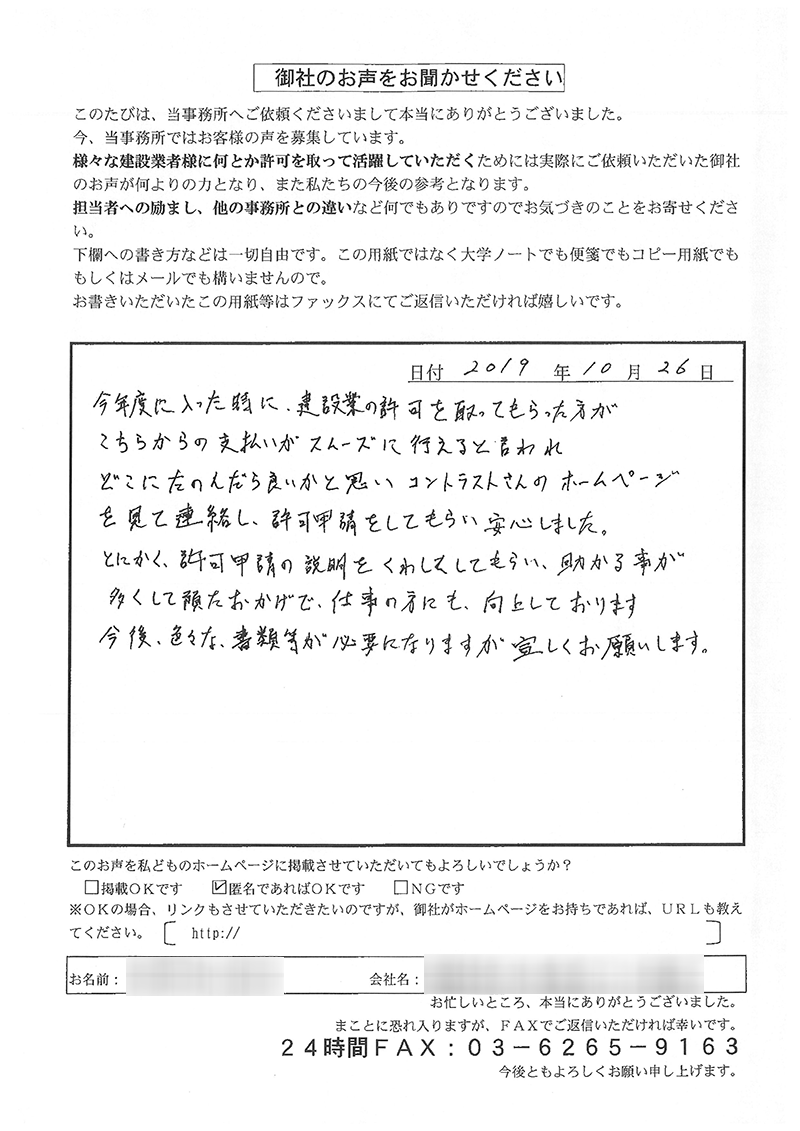 御社のお声をお聞かせください
このたびは、当事務所へご依頼くださいまして本当にありがとうございました。
今、当事務所ではお客様の声を募集しています。
様々な建設業者様に何とか許可を取って活躍していただくためには実際にご依頼いただいた御社
のお声が何よりの力となり、また私たちの今後の参考となります。
担当者への励まし、他の事務所との違いなど何でもありですのでお気づきのことをお寄せくださ
い。
下欄への書き方などは一切自由です。この用紙ではなく大学ノートでも便箋でもコピー用紙でも
もしくはメールでも構いませんので。
お書きいただいたこの用紙等はファックスにてご返信いただければ嬉しいです。
日付 2019 年 10 月 26 日
今年度に入った時に、建設業の許可を取ってもらった方が
こちらからの支払いがスムーズに行えると言われ
どこにたのんだら良いかと思い コントラストさんのホームページ
を見て連絡し、許可申請をしてもらい安心しました。
とにかく、許可申請の説明をくわしくしてもらい、助かる事が
多くして頂たおかげで、仕事の方にも、向上しております
今後、色々な、書類等が必要になりますが宜しくお願いします。
このお声を私どものホームページに掲載させていただいてもよろしいでしょうか？
□掲載ＯＫです ☑匿名であればＯＫです □ＮＧです
※ＯＫの場合、リンクもさせていただきたいのですが、御社がホームページをお持ちであれば、ＵＲＬも教え
てください。〔 http:// 〕
お名前： 会社名：
お忙しいところ、本当にありがとうございました。
まことに恐れ入りますが、ＦＡＸでご返信いただければ幸いです。
２４時間ＦＡＸ：０３－６２６５－９１６３
今後ともよろしくお願い申し上げます。